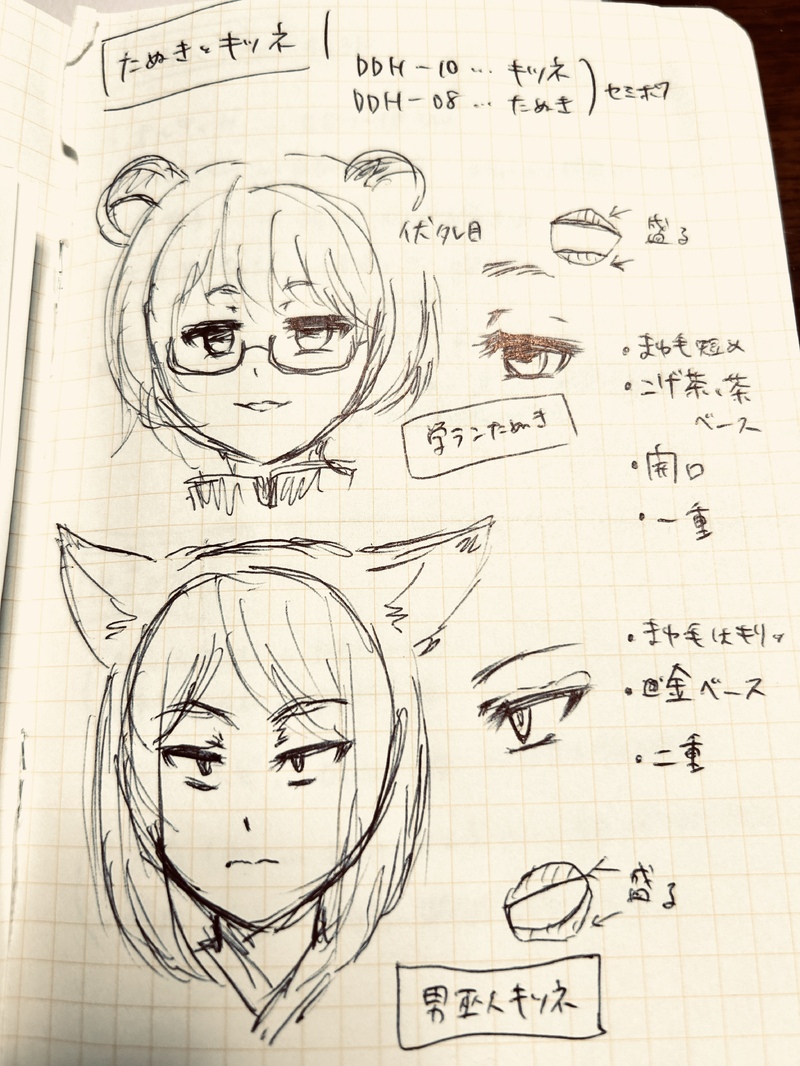 たぬきとキツネ
DDH-10 … キツネ
DDH-08 … たぬき
セミホワ
伏タレ目
盛る
・まゆ毛短め
・こげ茶、茶
ベース
学ランたぬき
・開口
・一重
・まゆ毛はキリッ
・金ベース
・二重
盛る
男巫人キツネ